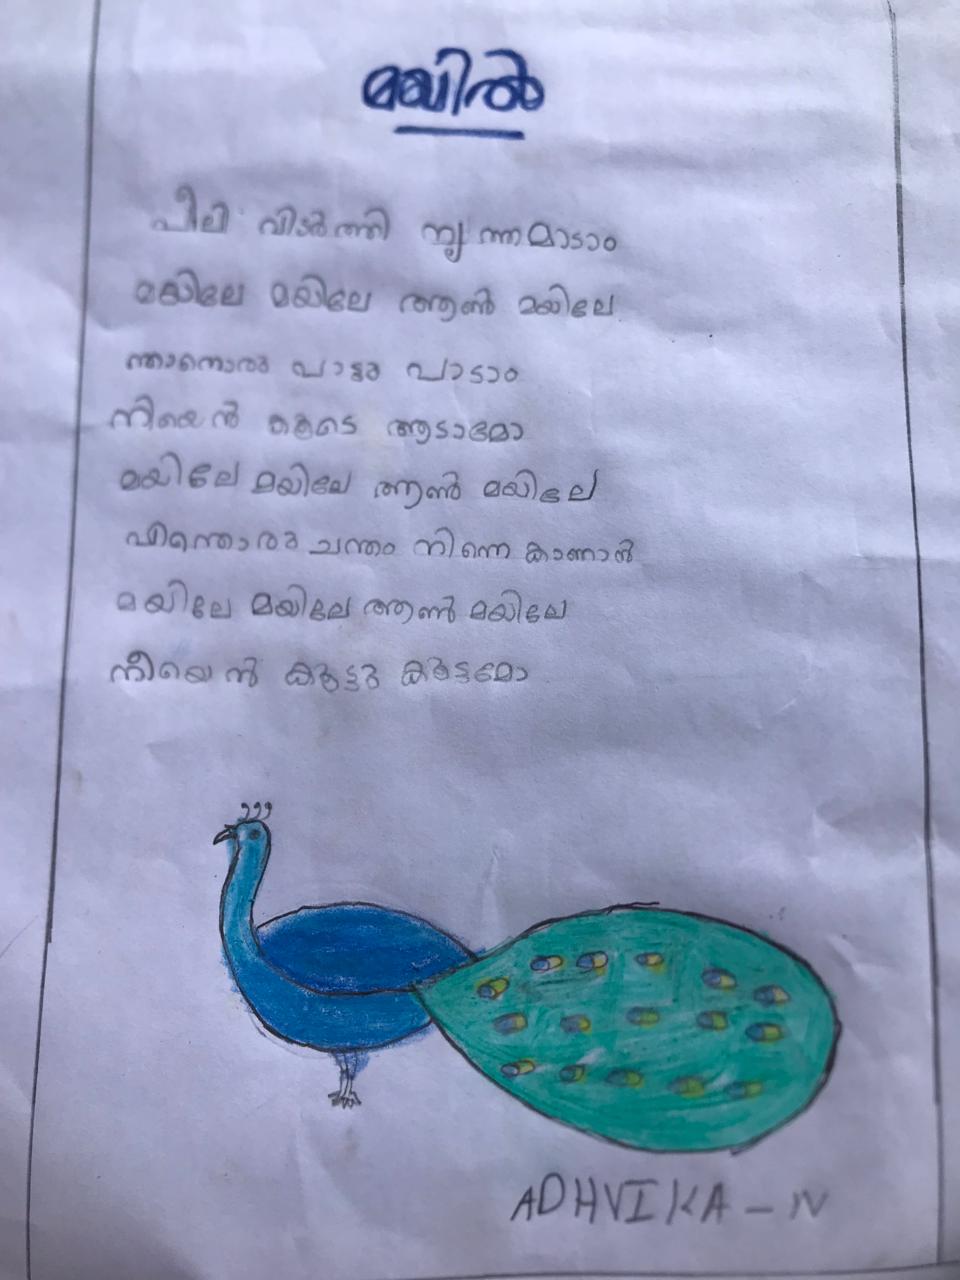 മയിൽ
പീലി വിടർത്തി നൃത്തമാടാം
മയിലേ മയിലേ ആൺ മയിലേ
ഞാനൊരു പാട്ടു പാടാം
നിയെൻ കൂടെ ആടാമോ
മയിലേ മയിലേ ആൺ മയിലേ
എന്തൊരു ചന്തം നിന്നെ കാണാൻ
മയിലേ മയിലേ ആൺ മയിലേ
നീയെൻ കൂട്ടു കൂട്ടമോ
ADHVIKA - IV